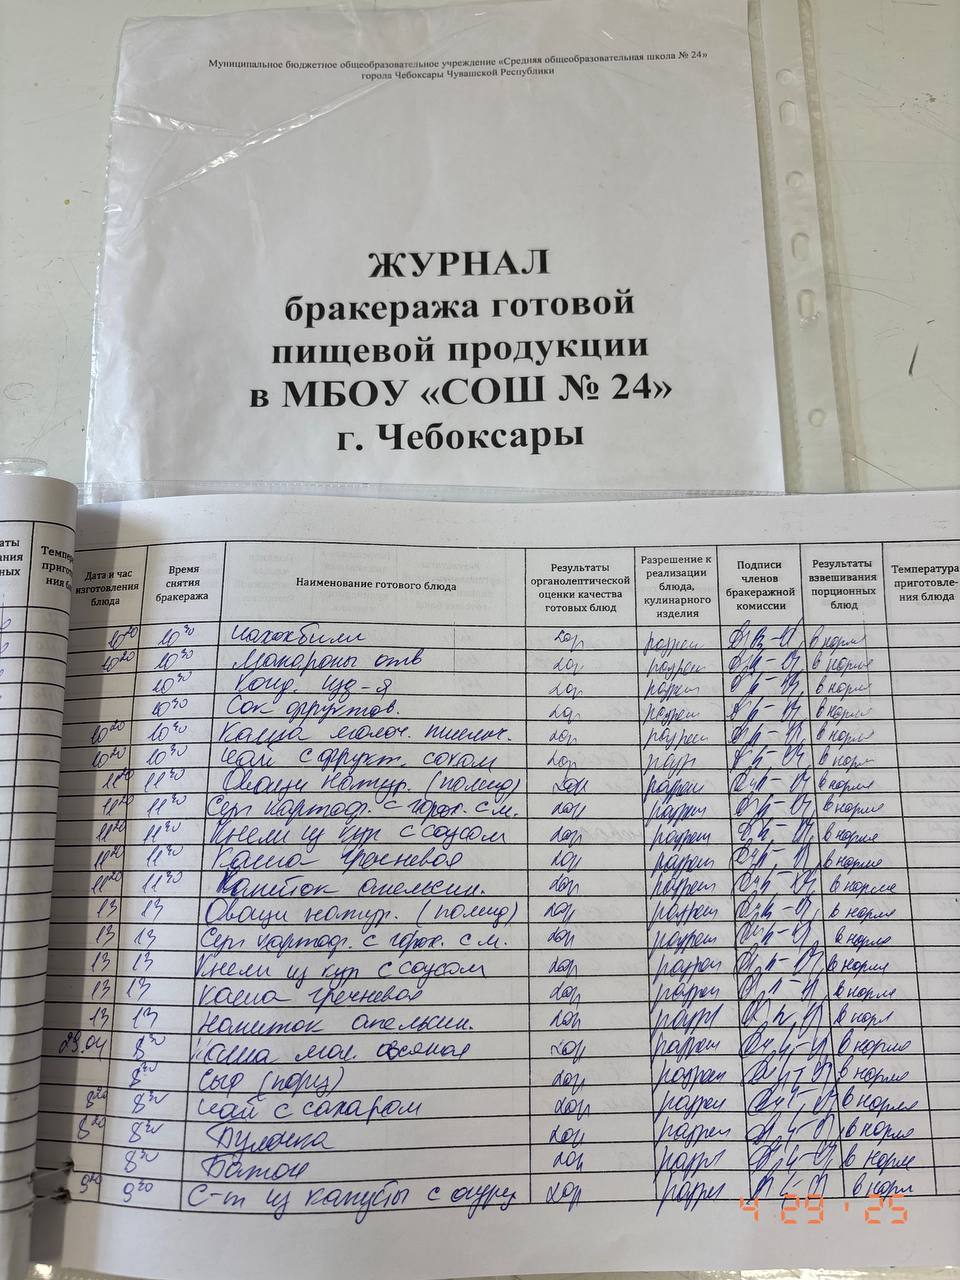 Муниципальное бюджетное общеобразовательное учреждение «Средняя общеобразовательная школа № 24»
города Чебоксары Чувашской Республики
ЖУРНАЛ
бракеража готовой
пищевой продукции
в МБОУ «СОШ № 24»
г. Чебоксары
Дата и час изготовления блюда Время снятия бракеража Наименование готового блюда Результаты органолептической оценки качества готовых блюд Разрешение к реализации блюда, кулинарного изделия Подписи членов бракеражной комиссии Результаты взвешивания порционных блюд Температура приготовле-ния блюда
10 20 10 30 хор в норме
10 20 10 30 Макароны отв хор разреш в норме
10 30 Конд. изд-я хор разреш в норме
10 30 Сок фруктов. хор разреш в норме
10 20 10 30 Каша молоч. пшенич. хор разреш в норме
10 20 10 30 Чай с фрукт. соком хор разр в норм
11 20 11 30 Овощи натур. (помид) хор разреш в норме
11 20 11 30 Суп картоф. с горох. с м. хор разреш в норме
11 20 11 30 Кнели из кур с соусом хор разреш в норме
11 20 11 30 Каша гречневая хор разреш в норме
11 20 11 30 Напиток апельсин. хор разреш в норме
13 13 Овощи натур. (помид) хор разреш в норме
13 13 Суп картоф. с горох. с м. хор разреш в норме
13 13 Кнели из кур с соусом хор разреш в норме
13 13 Каша гречневая хор разреш в норме
13 13 Напиток апельсин. хор разреш в норм
29.04 8 30 Каша мол. овсяная хор разреш в норме
8 30 Сыр (порц) хор разреш в норме
8 20 8 30 Чай с сахаром хор разреш в норме
8 20 8 30 Булочка хор разреш в норме
8 30 Батон хор разреш в норме
9 20 С-т из капусты с огурц хор разреш в норм
4 29 '25